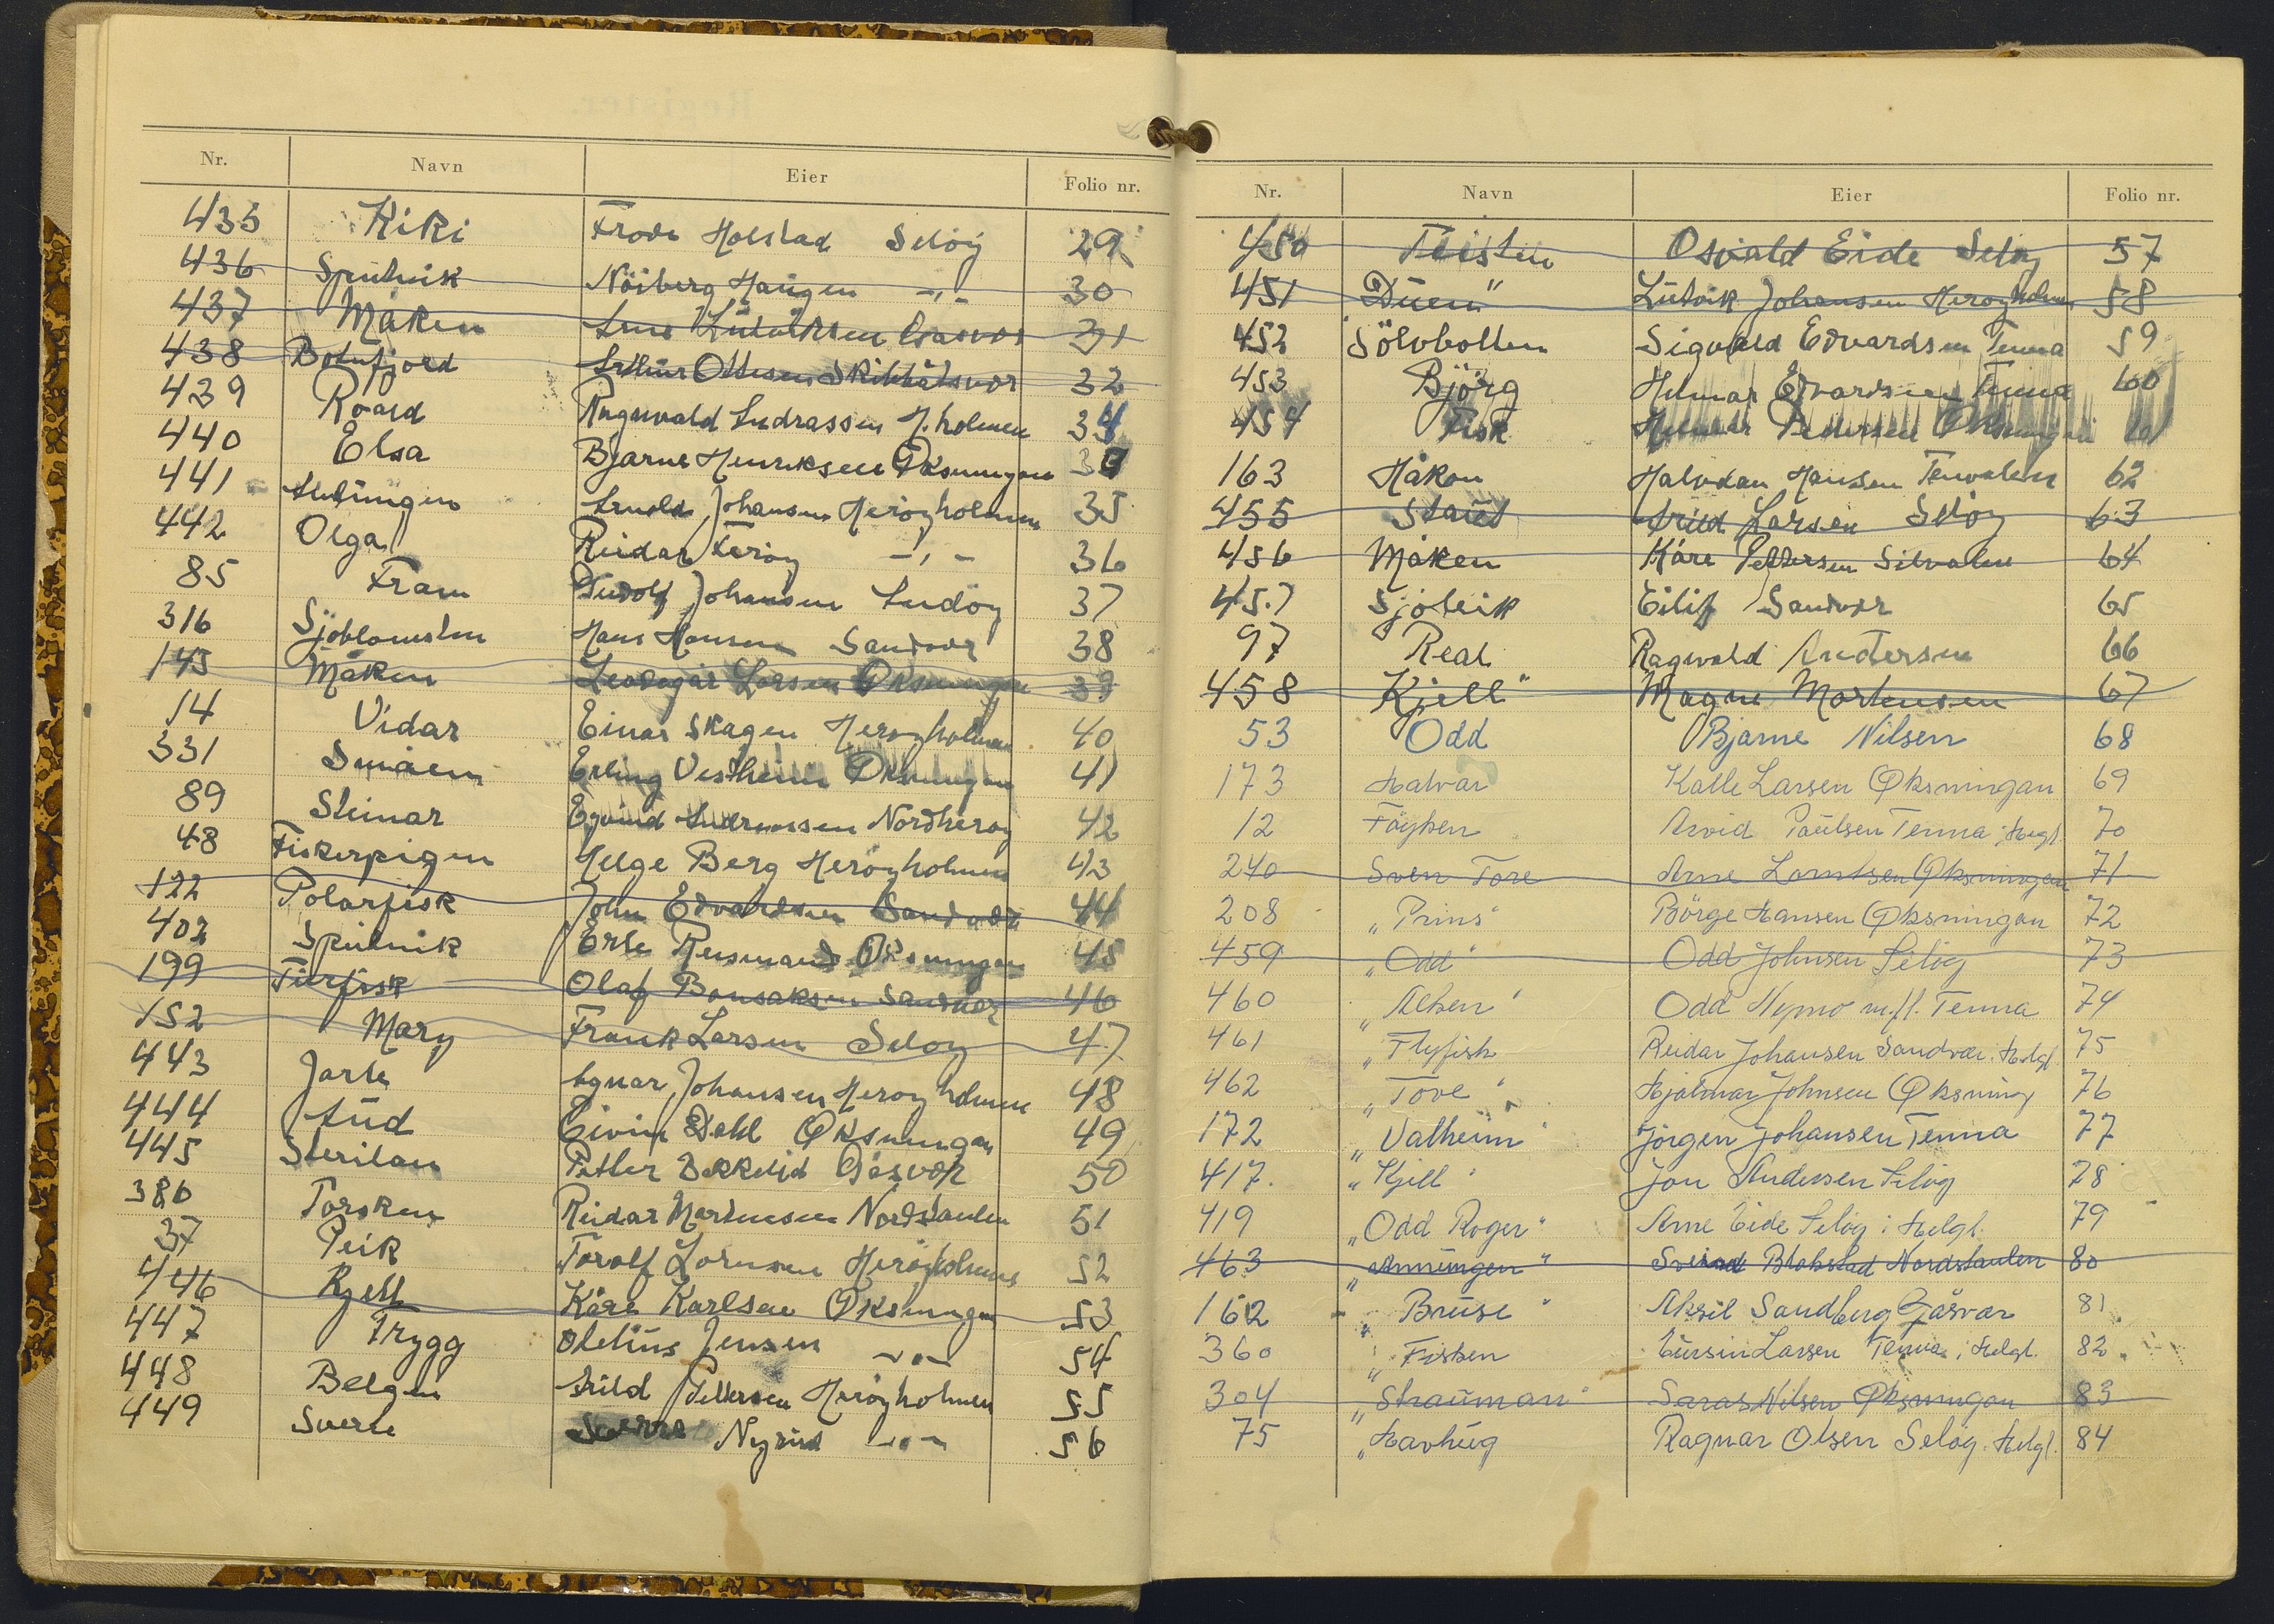 Nr. Navn Eier Folio nr.
435 Kiki Frode Holstad Seløy 29
436 Sputnik Nöiberg Haugen -"- 30
437 Måken Arne Ludviksen Gåsvær 31
438 Botnfjord Arthur Ottesen Skibbåtsvær 32
439 Roald Ragnvald Andrassen H.holmen 34
440 Elsa Bjarne Henriksen Øksningan
441 Arnold Johansen Heröyholmen 35
442 Olga Reidar Feröy -"- 36
85 Fram Rudolf Johansen Indöy 37
316 Sjöblomsten Hans Hansen Sandvær 38
145 Måken Larsen Øksningan 39
14 Vidar Einar Skagen Heröyholmen 40
331 Småen Erling Vestheim Øksningan 41
89 Steinar Eyvind Andreassen Nordheröy 42
48 Fiskerpigen Helge Berg Heröyholmen 43
122 Polarfisk John Edvardsen Sandvær 44
402 Sputnik Erle Øksningan 45
199 Olaf Bonsaksen Sandvær 46
152 Mary Frank Larsen Seløy 47
443 Jarle Agnar Johansen Heröyholmen 48
444 Aud Eivin Dahl Øksningan 49
445 Sterilan Petter Bekkelid Gåsvær 50
380 Torsken Reidar Mortensen Nordstaulen 51
37 Peik Torolf Lornsen Heröyholmen 52
446 Kjell Kåre Karlsen Øksningan 53
447 Trygg Oletius Jensen -"- 54
448 Belgen Arild Pettersen Heröyholmen 55
449 Sverre Sverre Nygård -"- 56
Nr. Navn Eier Folio nr.
450 Teisten Osvald Eide Seløy 57
451 Duen" Ludvik Johansen Heröyholmen 58
452 Sölvbolten Sigvald Edvardsen Tenna 59
453 Björg Helmar Edvardsen Tenna 60
454 Fisk Helmar Pedersen Øksningan
163 Håkon Halvdan Hansen Tenvalen 62
455 Staut Arild Larsen Selöy 63
456 Måken Kåre Pettersen Silvalen 64
457 Sjöleik Eilif Sandvær 65
97 Real Ragnvald Andersen 66
458 Kjell" Magne Mortensen 67
53 Odd Bjarne Nilsen 68
173 Halvar Kalle Larsen Øksningan 69
12 Föyken Arvid Paulsen Tenna i Helgl. 70
240 Sven Tore Arne Lorntsen Øksningan 71
208 „Prins" Börge Hansen Øksningan 72
459 „Odd" Odd Johnsen Selöy 73
460 „Alken" Odd Nymo m/fl. Tenna 74
461 „Flyfisk Reidar Johansen Sandvær i Helgl 75
462 „Tove" Hjalmar Johnsen Øksning 76
172 „Valheim" Jörgen Johansen Tenna 77
417. „Kjell" Jon Andersen Selöy 78
419 „Odd Roger" Arne Eide Selöy i Helgl. 79
463 „Anningen" Svein Blokstad Nordstaulen 80
162 „Bruse" Aksil Sandberg Gåsvær 81
360 „Fisken Larsen Tenna i Helgl. 82
304 „Strauman" Saras Nilsen Øksningan 83
75 „Havhug Ragnar Olsen Selöy Helgl. 84